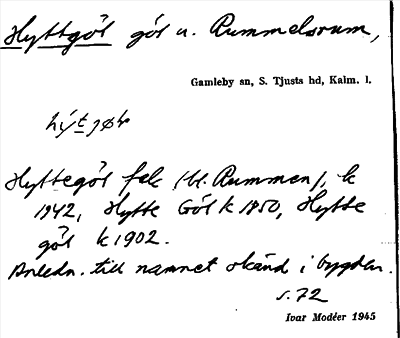 Hyttgöl göl u. Rummelsrum,
Gamleby sn, S. Tjusts hd, Kalm. l.
Hyttegöl fsk (bl. Rummen), k
1942, Hytte Göl k 1850, Hytte
göl k 1902.
Anledn. till namnet okänd i bygden.
s. 72
Ivar Modéer 1945